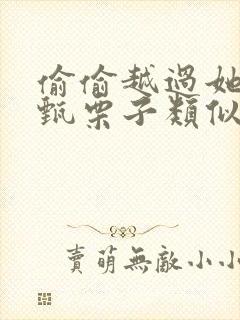 偷偷越過她
甄栗子類似
賣萌無敵小小